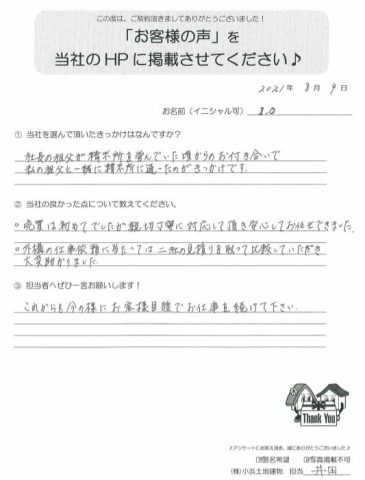 この度は、ご契約頂きましてありがとうございました！
「お客様の声」を
当社のHPに掲載させてください♪
2021年 8月 9日
お名前（イニシャル可） I.O
① 当社を選んで頂いたきっかけはなんですか？
社長の祖父が精米所を営んでいた頃からのお付き合いで
私の祖父と一緒に精米所に通ったのがきっかけです。
② 当社の良かった点について教えてください。
○売買は初めてでしたが親切丁寧に対応して頂き安心してお任せできました。
○外構の仕事依頼に当たっては二社の見積りを取って比較していただき
大変助かりました。
③ 担当者へぜひ一言お願いします！
これからも今の様にお客様目線でお仕事を続けて下さい。
Thank You
♪アンケートにお答え頂き、誠にありがとうございました♪
匿名希望 写真掲載不可
(株)小浜土地建物 担当